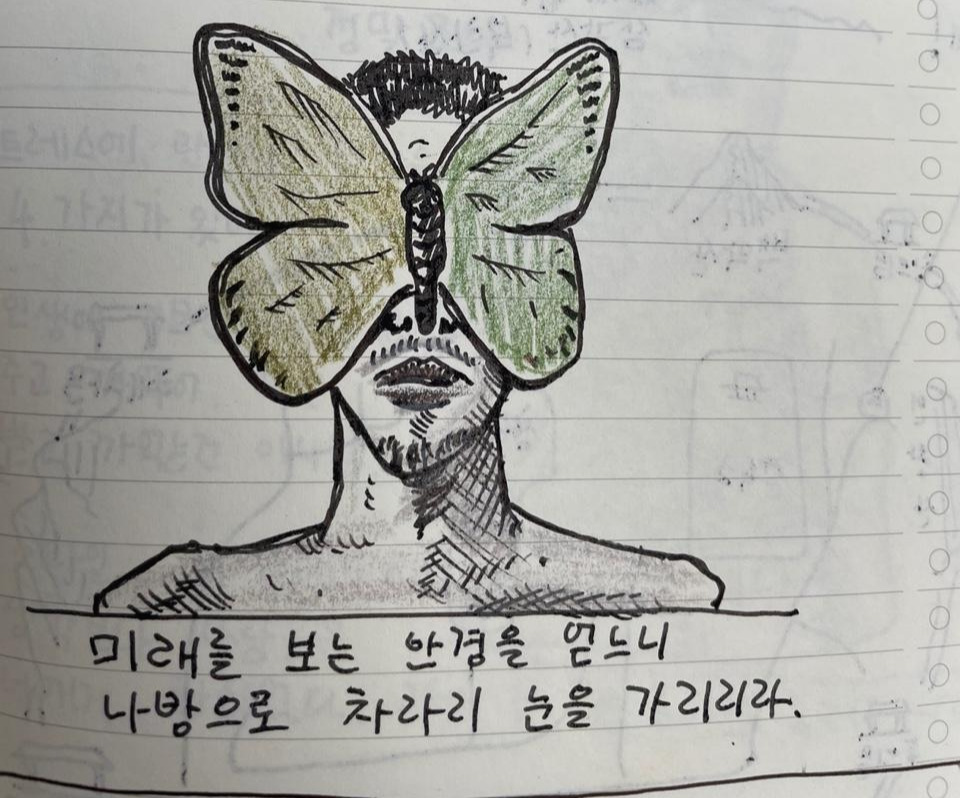 미래를 보는 안경을 얻느니
나방으로 차라리 눈을 가리리라.